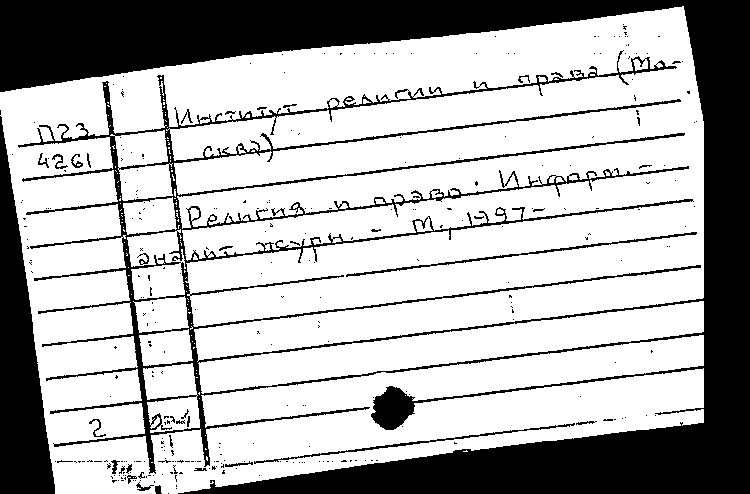 Институт религии и права (Мо-
П23
4261
сква)
Религия и право: Информ.-
аналит. журн. - М., 1997-
2